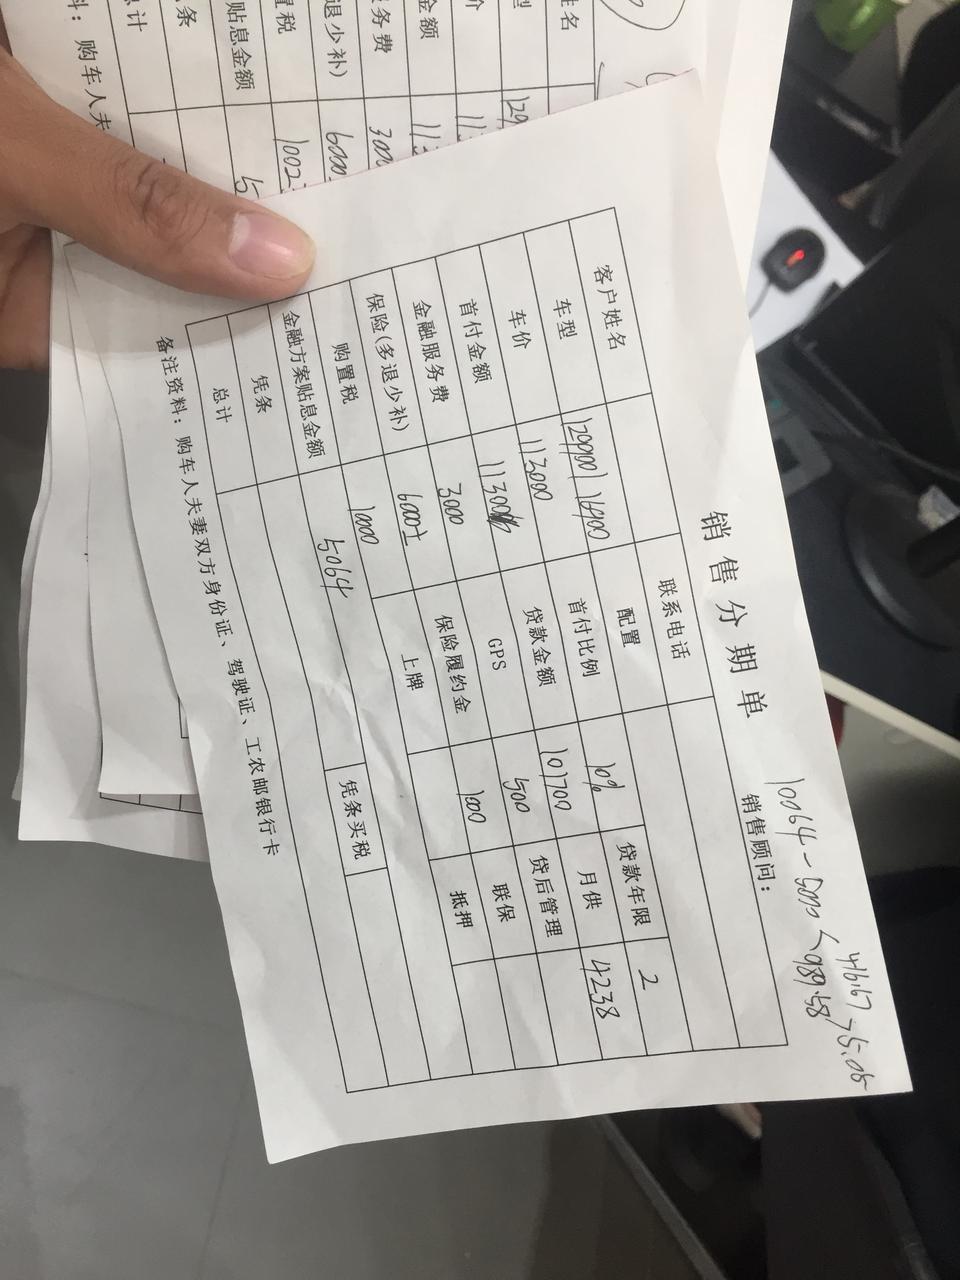 销售分期单
10064-5000<
416.67
989.58
>5.06
销售顾问：
客户姓名 联系电话
车型 129900/16900 配置
车价 113000 首付比例 10% 贷款年限 2
首付金额 11300 贷款金额 101700 月供 4238
金融服务费 3000 GPS 500 贷后管理
保险(多退少补) 6000± 保险履约金 1000 联保
购置税 1000 上牌 抵押
金融方案贴息金额 5064
凭条 凭条买税
总计
备注资料：购车人夫妻双方身份证、驾驶证、工农邮银行卡
姓名
型
价
金额
务费 3000
退少补) 6000
置税 1002
贴息金额 5
条
总计
料：购车人夫